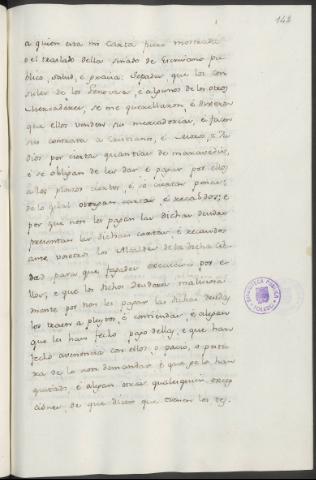 142
a quien esta mi Carta fuere mostrada
o el traslado della sinado de Escribano pu-
blico, salud, e gracia: Sepades que los con-
sules de los Genoveses, e algunos de los otros
Mercaderes, se me querellaron, e dixeron
que ellos venden sus mercadorias, e facen
sus contratos a Cristianos, e Moros, e Ju-
dios por ciertas quantias de maravedis,
e se obligan de les dar e pagar por ellos
a los plazos ciertos, e so ciertas penas;
de lo qual otorgan cartas, e recabdos; e
por que non les pagan las dichas deudas
presentan las dichas cartas e recaudos
ante vosotros los Alcaldes de la dicha Cib-
dad para que fagades execucion por e-
llos, e que los dichos deudores maliciosa-
mente por non les pagar las dichas deudas
los traen a pleytos, e contiendas, e alegan
que les han fecho pago dellas, e que han
fecho avenencia con ellos, o pacto, o postu-
ra de lo non demandar e que ge lo han
quitado, e alegan otras qualesquier excep-
ciones, de que dicen que vienen los di-
BIBLIOTECA PUBLICA
TOLEDO